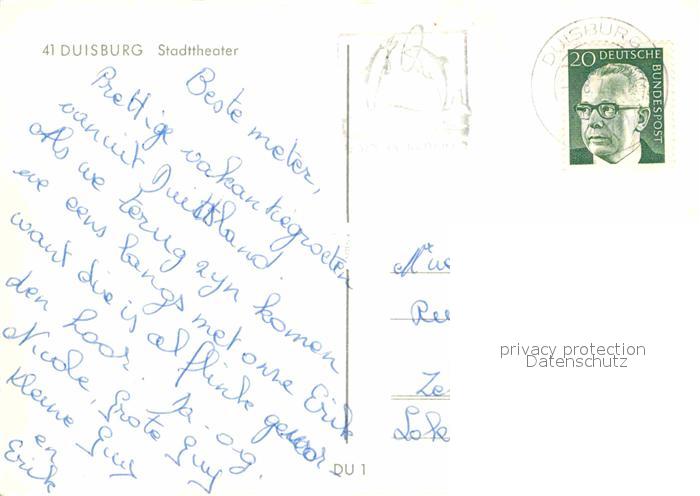 41 DUISBURG Stadttheater
Beste meter,
Prettige vakantiegroeten
vanuit Duitsland.
Als we terug zyn komen
we eens langs met onze Erik
want die is al flink gewor-
den hoor. Ja - og.
Nicole, Grote Guy
Kleine Guy
en
Erik
DUISBURG
20 DEUTSCHE
BUNDESPOST
privacy protection
Datenschutz
DU 1